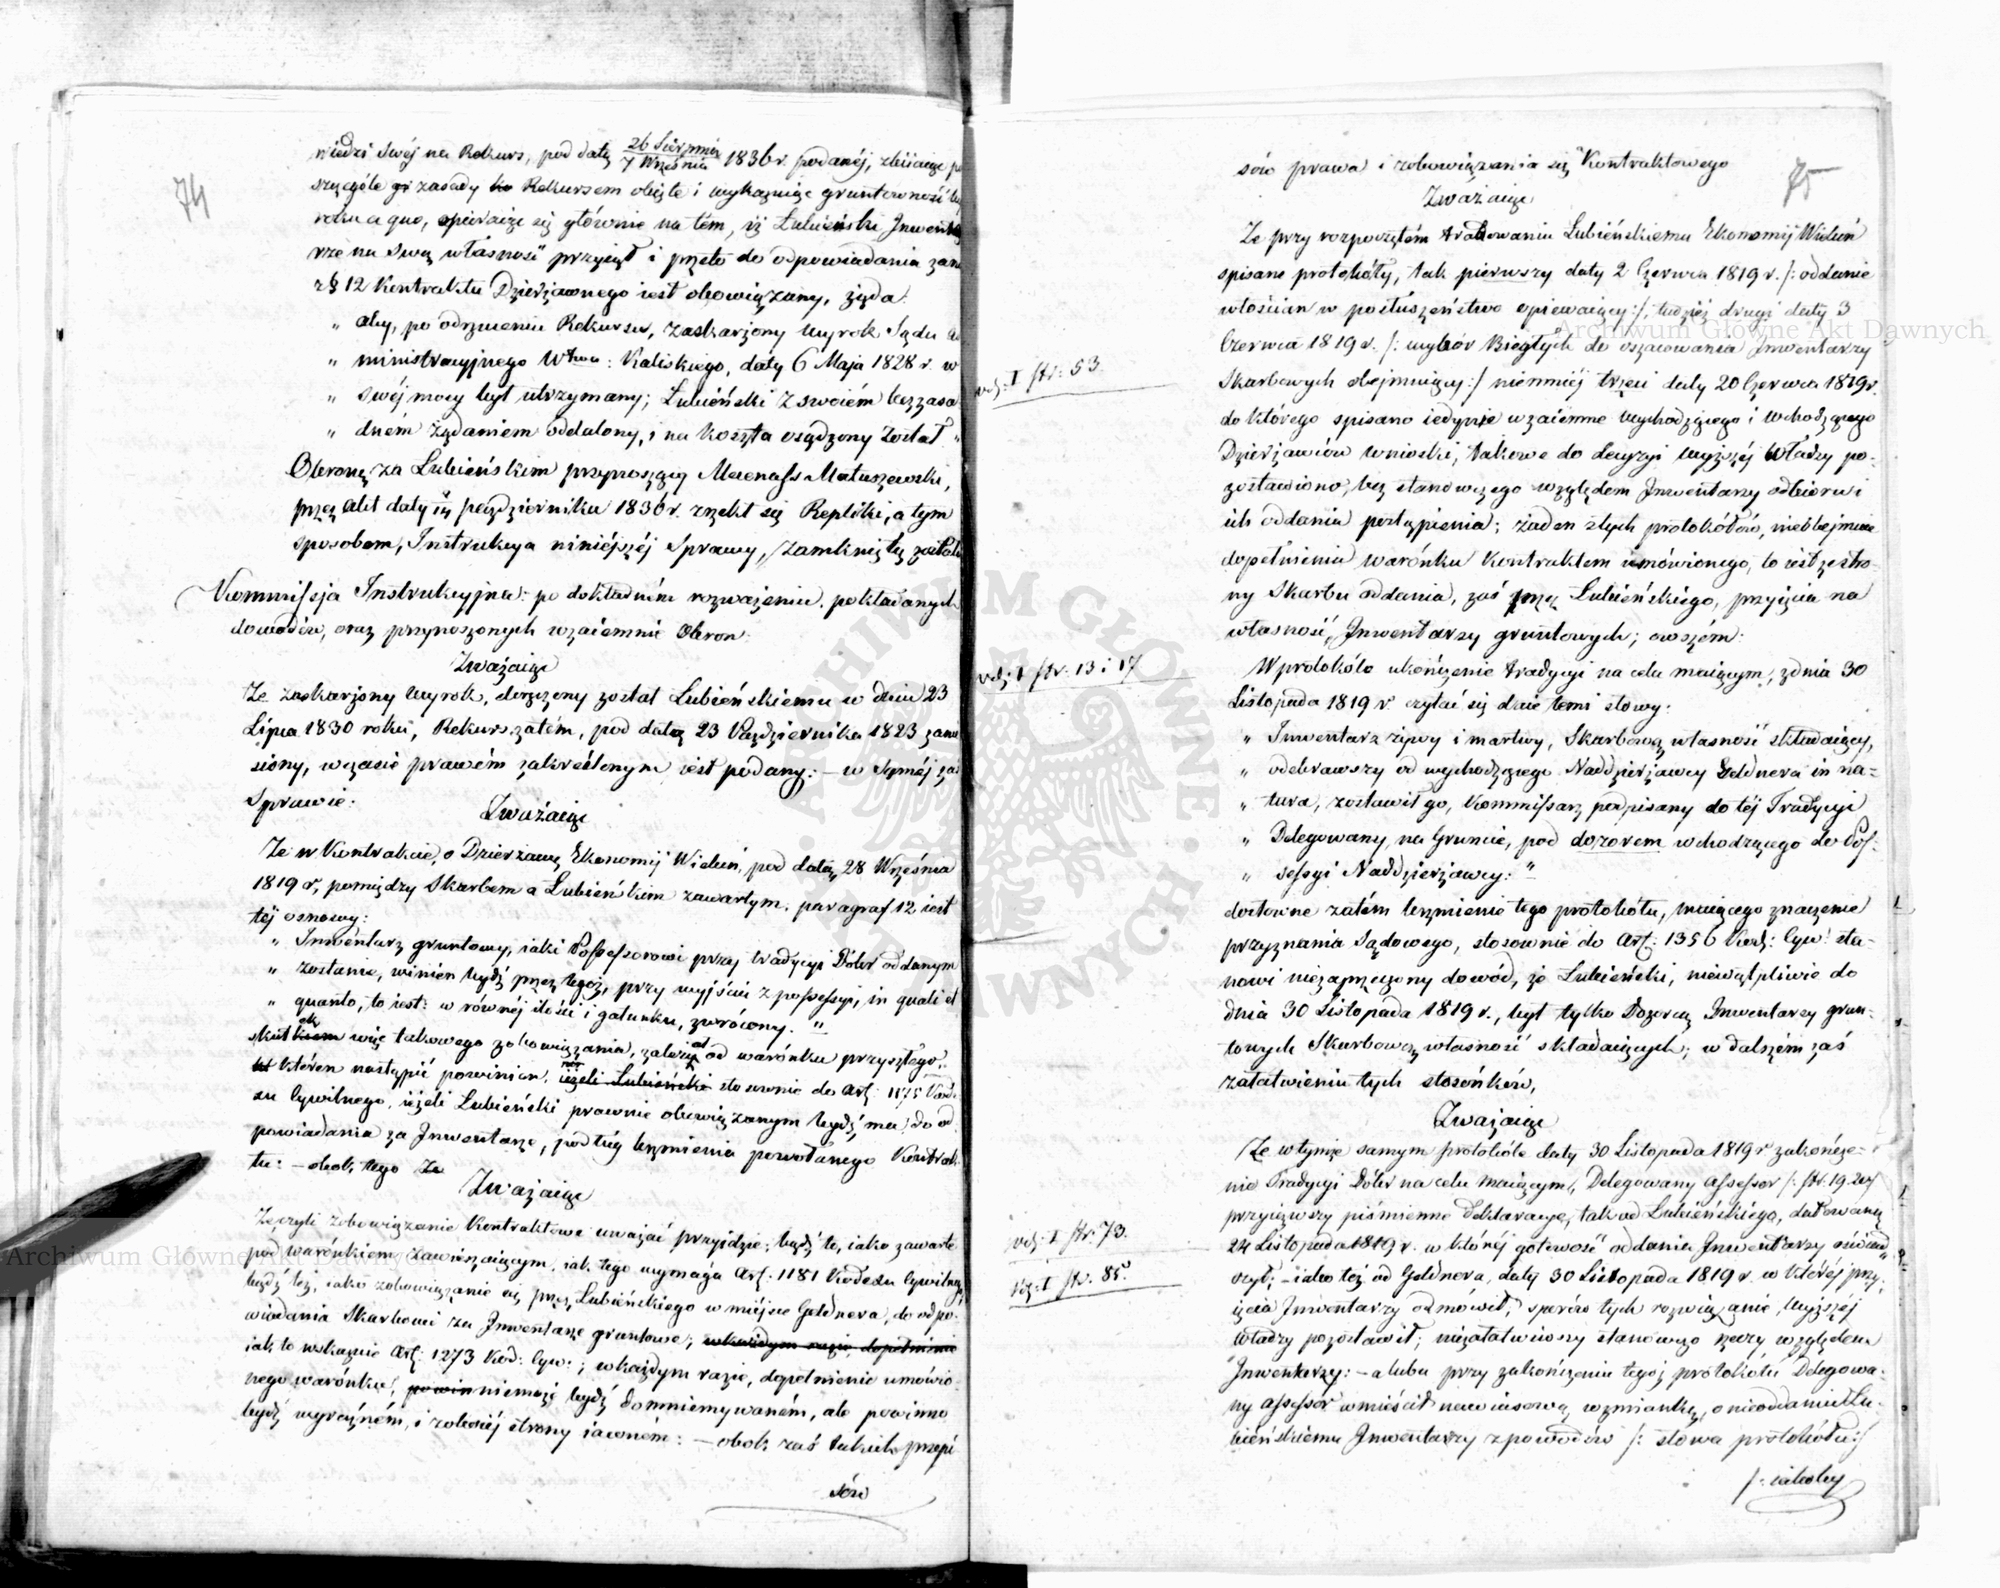 74
wiedzi swéj na Rekurs, pod datą 26 Sierpnia / 7 Września 1836 r. podanéj, zbiiaiąc po
szczególe zasady Rekursem obięte i wykazuiąc gruntowność
roku a quo, opieraiąc się głównie na tém, iż Łubieński Jnwenta
rze na swą własność przyiął i przeto do odpowiadania za
z § 12 Kontraktu Dzierżawnego iest obowiązany, żąda:
„ aby, po odrzuceniu Rekursu, zaskarżony wyrok Sądu Ad
„ ministracyjnego Wtwa: Kaliskiego, daty 6 Maja 1828 r. w
„ swéj mocy był utrzymany; Łubieński z swoiém bezzasa
„ dném żądaniem oddalony, i na koszta osądzony został „
Obronę za Łubieńskim przynoszący Mecenass Matuszewski,
przez akt daty Października 1836 r. zrzekł się Repliki, a tym
sposobem, Instrukcya niniéjszéj Sprawy, zamkniętą została
Kommissja Instrukcyjna: po dokładném rozważeniu pokładanych
dowodów, oraz przynoszonych wzaiemnie Obron:
Zważaiąc
Że zaskarżony wyrok, doręczony został Łubieńskiemu w dniu 23
Lipca 1830 roku, Rekurs zatém, pod datą 23 Października 1823 zano
siony, w czasie prawem zakreślonym iest podany: – w Saméj zaś
Sprawie:
Zważaiąc
Że w Kontrakcie o Dzierżawę Ekonomij Wieluń, pod datą 28 Września
1819 r., pomiędzy Skarbem a Łubieńskim zawartym, paragraf 12 iest
téj osnowy:
„ Inwentarz gruntowy, iaki Possessorowi przy tradycyi Dóbr oddanym
„ zostanie, winien bydź przez tegoż, przy wyjściu z possessyi, in quali et
„ quanto, to iest: w równéj ilości i gatunku, zwrócony. “
skutek więc takowego zobowiązania, zależy od warónku przyszłego,
któren nastąpić powinien, ieżeli Łubieński stosownie do Art: 1175 Kode
xu Cywilnego, ieżeli Łubieński prawnie obowiązanym bydź ma do od
powiadania za Jnwentarze, podług brzmienia powołanego Kontrak
tu: – obok tego Że
Zważaiąc
Że czyli zobowiązanie Kontraktowe uważać przyidzie, bądź to, iako zawarte
pod warónkiem zawieszaiącym, iak tego wymaga Art: 1181 Kodexu Cywilnego,
bądź téż, iako zobowiązanie się przez Łubieńskiego w miéjsce Geldnera, do odpo
wiadania Skarbowi za Jnwentarze gruntowe, w każdym razie, dopełnienie
iak to wskazuie Art: 1273 Kod: Cyw:; w każdym razie, dopełnienie umówio
nego warónku, powin niemoże bydź domniemywaném, ale powinno
bydź wyraźném, i z obojéj strony iawném: – obok zaś takich przepi
sów
75
sów prawa i zobowiązania się Kontraktowego
Zważaiąc
Że przy rozpoczętém tradowaniu Łubieńskiemu Ekonomij Wieluń
spisane protokóły, tak pierwszy daty 2 Czerwca 1819 r. /: oddanie
włościan w posłuszeństwo opiewaiący:/, tudzież drugi daty 3
Czerwca 1819 r. /: wybór Biegłych do oszacowania Jnwentarzy
Skarbowych obejmuiący:/ niemniéj trzeci daty 20 Czerwca 1819 r.
do którego spisano iedynie wzaiemne wychodzącego i wchodzącego
Dzierżawców wnioski, takowe do decyzyi wyższéj Władzy po-
zostawiono, bez stanowczego względem Jnwentarzy odbioru i
ich oddania postąpienia; żaden z tych protokółów, nieobejmuie
dopełnienia warónku Kontraktem umówionego, to iest ze stro-
ny Skarbu oddania, zaś przez Łubieńskiego, przyięcia na
własność, Jnwentarzy gruntowych; owszém:
vide: I str: 53.
W protokóle ukończenie tradycyi na celu maiącym, z dnia 30
Listopada 1819 r. czytać się daie temi słowy:
vide: I str. 13 i 17
„ Inwentarz żywy i martwy, Skarbową własność składaiący,
„ odebrawszy od wychodzącego Naddzierżawcy Geldnera in na-
„ tura, zostawił go, Kommissarz podpisany do téj Tradycyi
„ Delegowany, na Gruncie, pod dozorem wchodzącego do Pos-
„ sessyi Naddzierżawcy: “
dosłowne zatém brzmienie tego protokółu, maiącego znaczenie
przyznania Sądowego, stosownie do Art: 1356 Kod: Cyw: sta-
nowi niezaprzeczony dowód, że Łubieński, niewątpliwie do
dnia 30 Listopada 1819 r., był tylko Dozorcą Jnwentarzy grun-
towych Skarbową własność składaiących; w dalszém zaś
załatwieniu tych stosónków,
Zważaiąc
Że w tymże samym protokóle daty 30 Listopada 1819 r. zakończe-
nie Tradycyi Dóbr na celu maiącym, Delegowany Assessor /: str. 19. 20/
przyiąwszy piśmienne Deklaracye, tak od Łubieńskiego, datowaną
24 Listopada 1819 r. w któréj gotowość oddania Jnwentarzy oświad
czył; – iako téż od Geldnera, daty 30 Listopada 1819 r. w któréj przy-
ięcia Jnwentarzy odmówił, sporów tych rozwiązanie, Wyższéj
Władzy pozostawił; niezałatwiwszy stanowczo rzeczy względem
Jnwentarzy: – a lubo przy zakończeniu tegoż protokółu Delegowa-
ny Assessor umieścił nawiasową wzmiankę, o nieoddaniu Łu-
bieńskiemu Jnwentarzy z powodów /: słowa protokółu:/
vide: I str. 73.
vide: I str. 85.
/: iakoby
Archiwum Główne Akt Dawnych
Archiwum Główne Akt Dawnych
ARCHIWUM GŁÓWNE AKT DAWNYCH